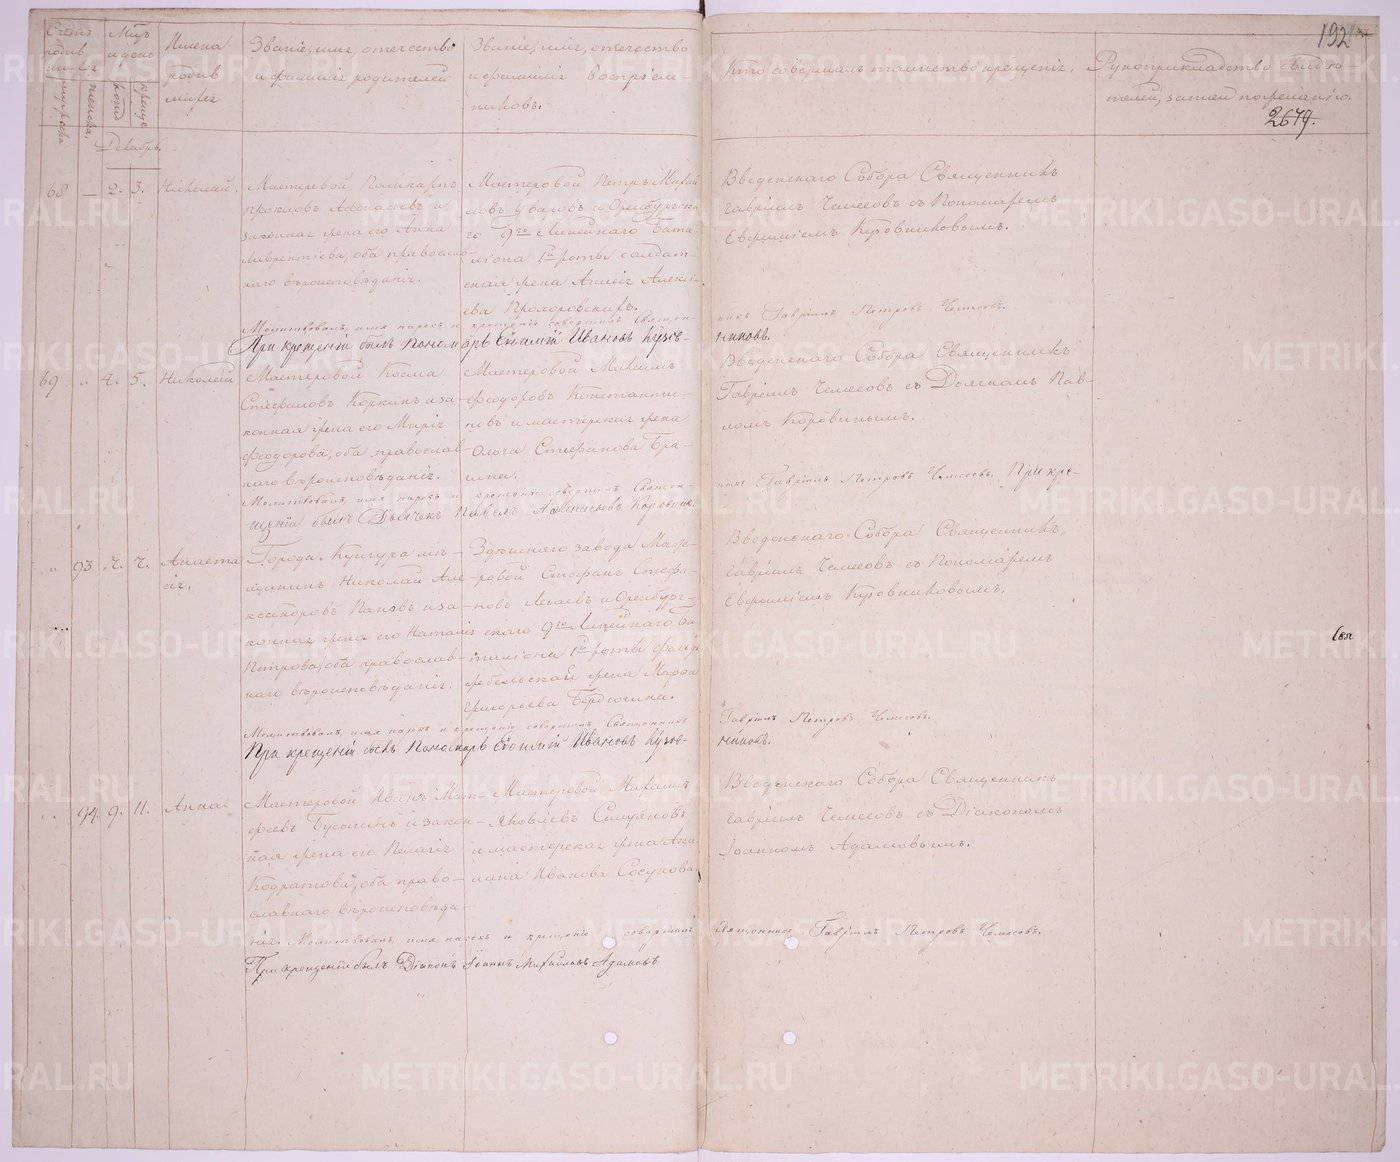 192
Счетъ родив шихся
мужеска.
женска.
Мѣсяцъ и день
рожд
крещен
Имена родив шихся
Званіе, имя, отечество и фамилія родителей
Званіе, имя, отечество и фамилія воспріем- никовъ.
Кто совершалъ таинство крещенія.
Рукоприкладство свидѣ телей, записей по желанію.
2679.
Декабрь.
68 — 2. 3. Николай.
Мастеровой Поликарпъ
Афонасьевъ и
законная жена его Анна
Лаврентіева, оба православ-
наго вѣроисповѣданія.
Мастеровой Петръ Михай
ловъ и Оренбургска
го 9го Линейнаго Бата
ліона 1й роты солдат-
ская жена Алексѣ-
ева Прохоровскихъ.
Введенскаго Собора Священникъ
Гавріилъ Чемесовъ съ Пономаремъ
Евфиміемъ Кузовниковымъ.
Молитвовалъ, имя нарекъ и крещеніе совершилъ Священ-
никъ Гавріилъ Петровъ Чемесовъ.
При крещеніи былъ Пономарь Евфимій Ивановъ Кузов-
никовъ.
69 „ 4. 5. Николай
Мастеровой Косма
Стефановъ Коркинъ и за-
конная жена его Марія
Феодорова, оба православ-
наго вѣроисповѣданія.
Мастеровой Максимъ
Феодоровъ Константи-
новъ и мастерская жена
Ольга Стефанова Бра-
гина.
Введенскаго Собора Священникъ
Гавріилъ Чемесовъ съ Дьячкомъ Пав-
ломъ Коровинымъ.
Молитвовалъ, имя нарекъ и крещеніе совершилъ Священ-
никъ Гавріилъ Петровъ Чемесовъ. При кре-
щеніи былъ Дьячекъ Павелъ Афанасьевъ Коровинъ.
„ 93 7. 7. Анаста
сія.
Города Кунгура мѣ-
щанинъ Николай Але-
ксандровъ Поповъ и за-
конная жена его Наталія
Петрова, оба православ-
наго вѣроисповѣданія.
Здѣшняго завода Масте-
ровой Стефанъ Стефа-
новъ и Оренбург-
скаго 9го Линейнаго Ба
таліона 1й роты фельд
фебельская жена Марѳа
Григорьева Бердюгина.
Введенскаго Собора Священникъ
Гавріилъ Чемесовъ съ Пономаремъ
Евфиміемъ Кузовниковымъ.
Свя
Молитвовалъ, имя нарекъ и крещеніе совершилъ Священникъ
Гавріилъ Петровъ Чемесовъ.
При крещеніи былъ Пономарь Евфимій Ивановъ Кузов-
никовъ.
„ 94. 9. 11. Анна
Мастеровой Иванъ Мат-
феевъ Бусыгинъ и закон-
ная жена его Пелагія
Кодратова, оба право-
славнаго вѣроисповѣда-
нія.
Мастеровой Максимъ
Яковлевъ
и мастерская жена Аки
лина Иванова Сосунова
Введенскаго Собора Священникъ
Гавріилъ Чемесовъ съ Діакономъ
Іоанномъ Адамовымъ.
Молитвовалъ, имя нарекъ и крещеніе совершилъ
Священникъ Гавріилъ Петровъ Чемесовъ.
При крещеніи былъ Діаконъ Іоаннъ Михайловъ Адамовъ
METRIKI.GASO-URAL.RU